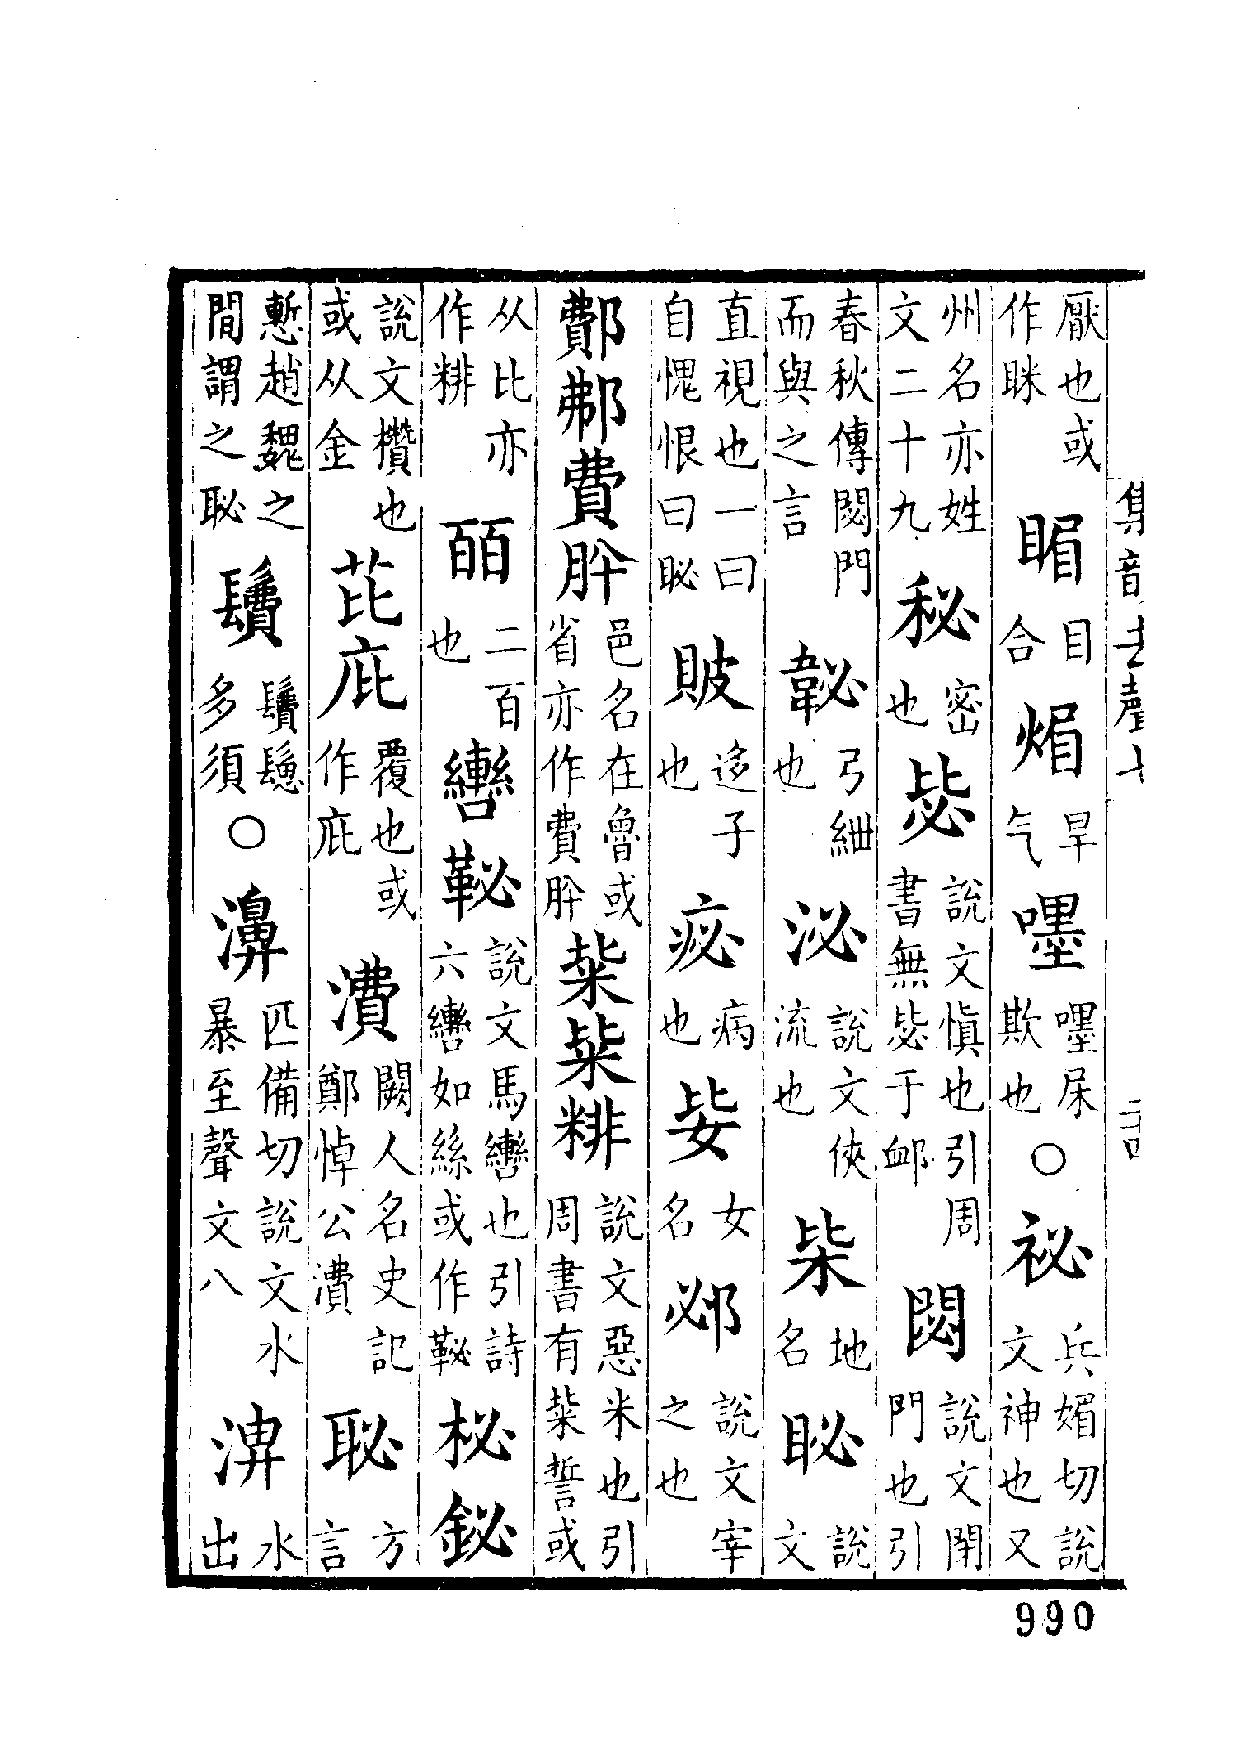 厭也或作眯 睸 目合 煝 旱气 嚜 嚜㞘欺也 ○ 祕 兵媚切說文神也又
州名亦姓文二十九 秘 密也 毖 說文愼也引周書無毖于卹 閟 說文閉門也引
春秋傳閟門而與之言 䪐 弓紲也 泌 說文俠流也 枈 地名 䀣 說文
直視也一曰自愧恨曰䀣 貱 迻子也 病也 女名 邲 說文宰之也
鄪 費 肸 邑名在魯或省亦作費肸 粊 䊧 說文惡米也引周書有粊誓或
从比亦作䊧 皕 二百也 轡 䩛 說文馬轡也引詩六轡如絲或作䩛 柲 鉍
說文欑也或从金 芘 庇 覆也或作庇 㵒 闕人名史記鄭悼公㵒 䎵 方言
慙趙魏之間謂之䎵 多須 ○ 濞 匹備切說文水暴至聲文八 淠 水出
集韻去聲七
二十四
990